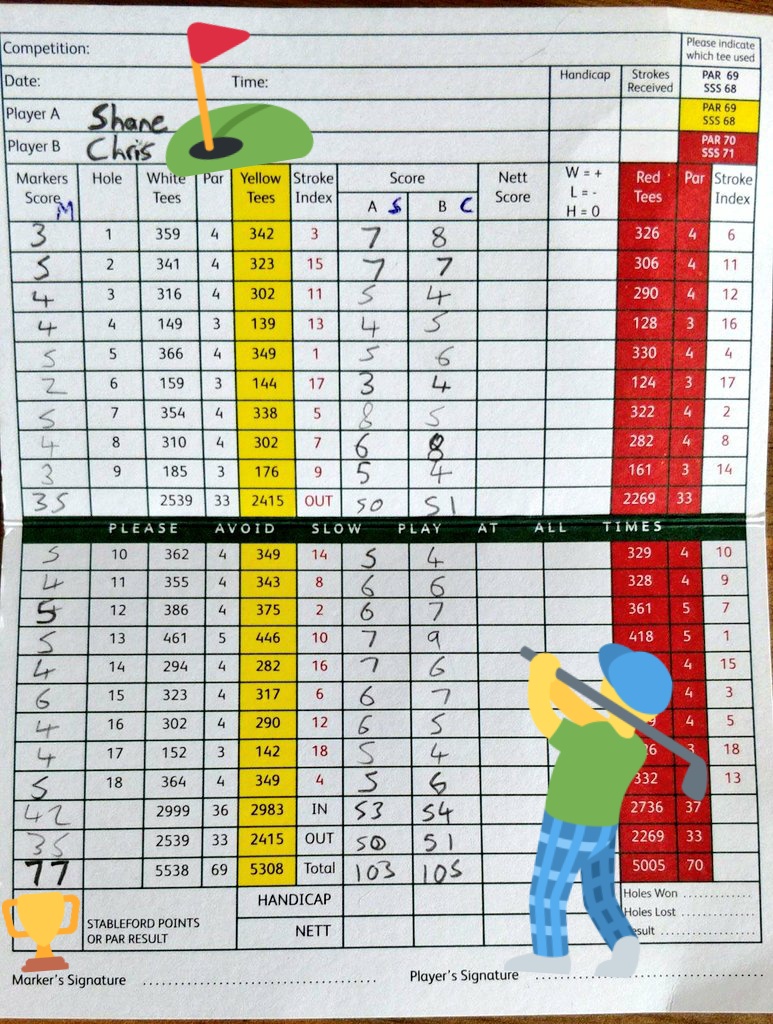 Competition:
Please indicate which tee used
Date: Time: Handicap Strokes Received PAR 69 SSS 68
Player A Shane PAR 69 SSS 68
Player B Chris PAR 70 SSS 71
Markers Score M Hole White Tees Par Yellow Tees Stroke Index Score A S B C Nett Score W = + L = - H = 0 Red Tees Par Stroke Index
3 1 359 4 342 3 7 8 326 4 6
5 2 341 4 323 15 7 7 306 4 11
4 3 316 4 302 11 5 4 290 4 12
4 4 149 3 139 13 4 5 128 3 16
5 5 366 4 349 1 5 6 330 4 4
2 6 159 3 144 17 3 4 124 3 17
5 7 354 4 338 5 8 5 322 4 2
4 8 310 4 302 7 6 8 282 4 8
3 9 185 3 176 9 5 4 161 3 14
35 2539 33 2415 OUT 50 51 2269 33
PLEASE AVOID SLOW PLAY AT ALL TIMES
5 10 362 4 349 14 5 4 329 4 10
4 11 355 4 343 8 6 6 328 4 9
5 12 386 4 375 2 6 7 361 5 7
5 13 461 5 446 10 7 9 418 5 1
4 14 294 4 282 16 7 6 4 15
6 15 323 4 317 6 6 7 4 3
4 16 302 4 290 12 6 5 4 5
4 17 152 3 142 18 5 4 3 18
5 18 364 4 349 4 5 6 332 13
42 2999 36 2983 IN 53 54 2736 37
35 2539 33 2415 OUT 50 51 2269 33
77 5538 69 5308 Total 103 105 5005 70
STABLEFORD POINTS OR PAR RESULT HANDICAP Holes Won
Holes Lost
NETT
Marker's Signature Player's Signature